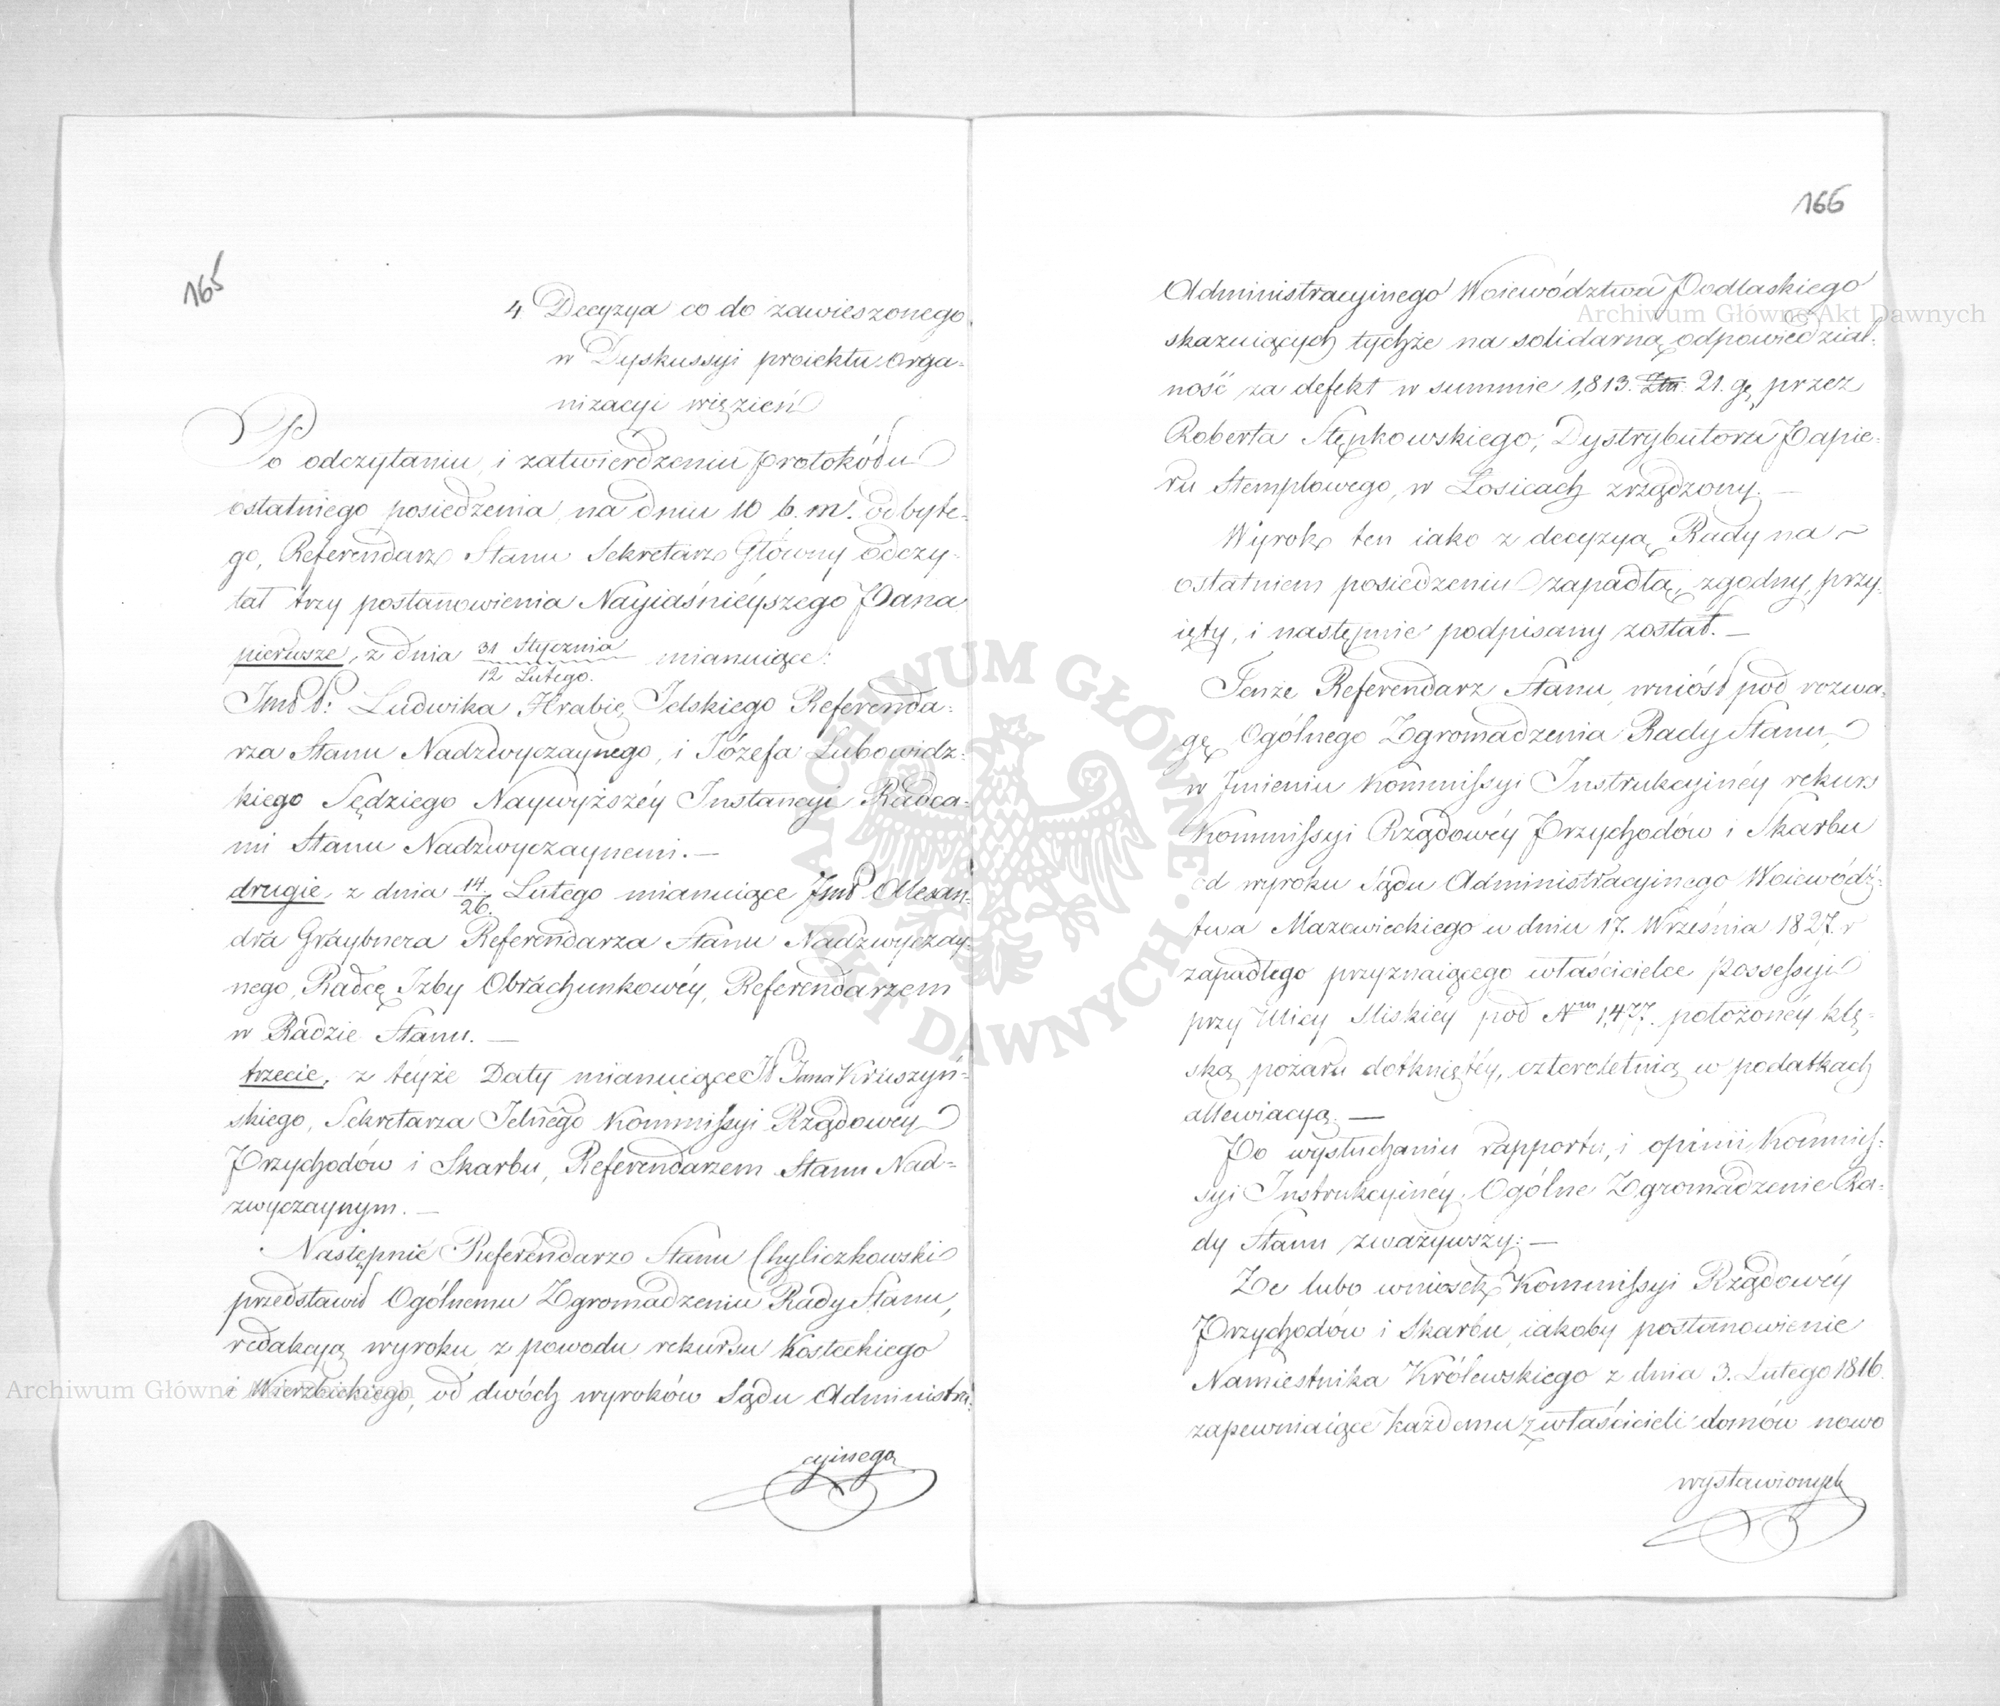 165
4 Decyzya co do zawieszonego
w Dyskussyi proiektu orga-
nizacyi więzień
Po odczytaniu i zatwierdzeniu Protokółu
ostatniego posiedzenia na dniu 10 b. m. odbyte-
go, Referendarz Stanu Sekretarz Główny odczy-
tał trzy postanowienia Nayiaśnieyszego Pana
pierwsze, z dnia 31 Stycznia mianuiące:
12 Lutego.
Ludwika Hrabię Jelskiego Referenda-
rza Stanu Nadzwyczaynego, i Józefa Lubowidz-
kiego Sędziego Naywyższéy Instancyi Radca-
mi Stanu Nadzwyczaynemi.—
drugie, z dnia 14. Lutego mianuiące JmP. Alexan-
26.
dra Graybnera Referendarza Stanu Nadzwyczay-
nego, Radcę Izby Obrachunkowéy, Referendarzem
w Radzie Stanu.—
trzecie, z téyże Daty mianuiące JP Jana Kruszyń-
skiego, Sekretarza Jelnégo Kommissyi Rządowéy
Przychodów i Skarbu, Referendarzem Stanu Nad-
zwyczaynym.—
Następnie Referendarz Stanu Chyliczkowski
przedstawił Ogólnemu Zgromadzeniu Rady Stanu,
redakcyą wyroku z powodu rekursu Kosteckiego
i Wierzbickiego, od dwóch wyroków Sądu Administra-
cyinego
166
Administracyinego Woiewództwa Podlaskiego
skazuiących tychże na solidarną odpowiedzial-
ność za defekt w summie 1,813. Zł. 21. gr, przez
Roberta Stępkowskiego, Dystrybutora Papie-
ru Stemplowego, w Łosicach zrządzony.—
Wyrok ten iako z decyzyą Rady na
ostatniem posiedzeniu zapadłą, zgodny, przy-
ięty, i następnie podpisany został.—
Tenże Referendarz Stanu, wniósł pod rozwa-
gę Ogólnego Zgromadzenia Rady Stanu,
w Jmieniu Kommissyi Instrukcyinéy rekurs
Kommissyi Rządowéy Przychodów i Skarbu
od wyroku Sądu Administracyinego Woiewódz-
twa Mazowieckiego w dniu 17. Września 1827. r
zapadłego przyznaiącego właścicielce Possessyi
przy Ulicy Sliskiéy pod Nrm 1,477. położonéy klę-
ską pożaru dotkniętéy, czteroletnią w podatkach
allewiacyą.—
Po wysłuchaniu rapportu, i opinii Kommis-
syi Instrukcyinéy, Ogólne Zgromadzenie Ra-
dy Stanu zważywszy:—
Że lubo wniosek Kommissyi Rządowéy
Przychodów i Skarbu, iakoby postanowienie
Namiestnika Królewskiego z dnia 3. Lutego 1816.
zapewniaiące każdemu z właścicieli domów nowo
wystawionych
Archiwum Główne Akt Dawnych
Archiwum Główne Akt Dawnych
ARCHIWUM GŁÓWNE AKT DAWNYCH